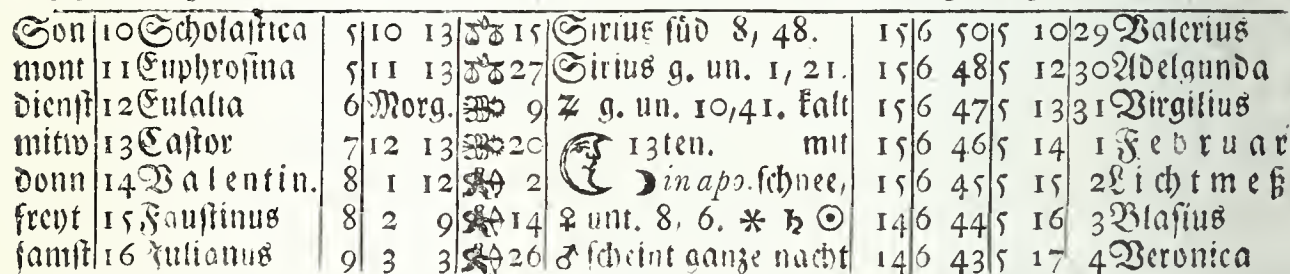 Son 10 Scholastica 5 10 13 15 Sirius süd 8, 48. 15 6 50 5 10 29 Valerius
mont 11 Euphrosina 5 11 13 27 Sirius g. un. 1, 21. 15 6 48 5 12 30 Adelgunda
dienst 12 Eulalia 6 Morg. 9 ♃ g. un. 10,41. kalt 15 6 47 5 13 31 Virgilius
mitw 13 Castor 7 12 13 20 13ten. mit 15 6 46 5 14 1 Februar
donn 14 Valentin. 8 1 12 2 ☽ in apo. schnee, 15 6 45 5 15 2 Lichtmeß
freyt 15 Faustinus 8 2 9 14 ♀ unt. 8, 6. ⚹ ♄ ☉ 14 6 44 5 16 3 Blasius
samst 16 Julianus 9 3 3 26 ♂ scheint ganze nacht 14 6 43 5 17 4 Veronica